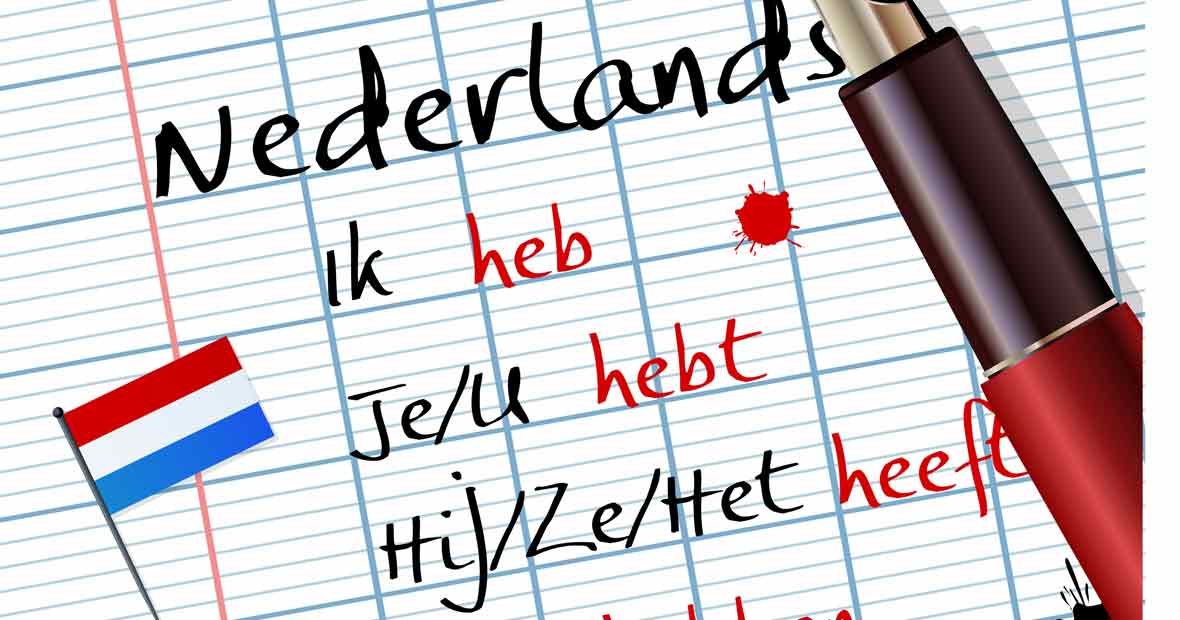 Nederlands
Ik heb
Je/U hebt
Hij/Ze/Het heeft